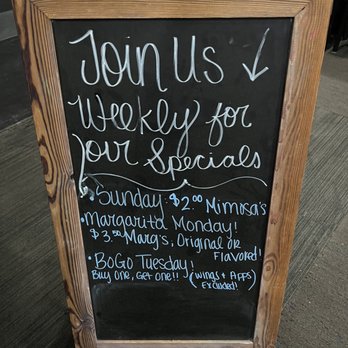 Join Us
Weekly for
our Specials
• Sunday: $2.00 Mimosa's
• Margarita Monday!
$3.50 Marg's, Original or
Flavored!
• BoGo Tuesday!
Buy One, Get One!! (Wings + Apps)
Excluded!